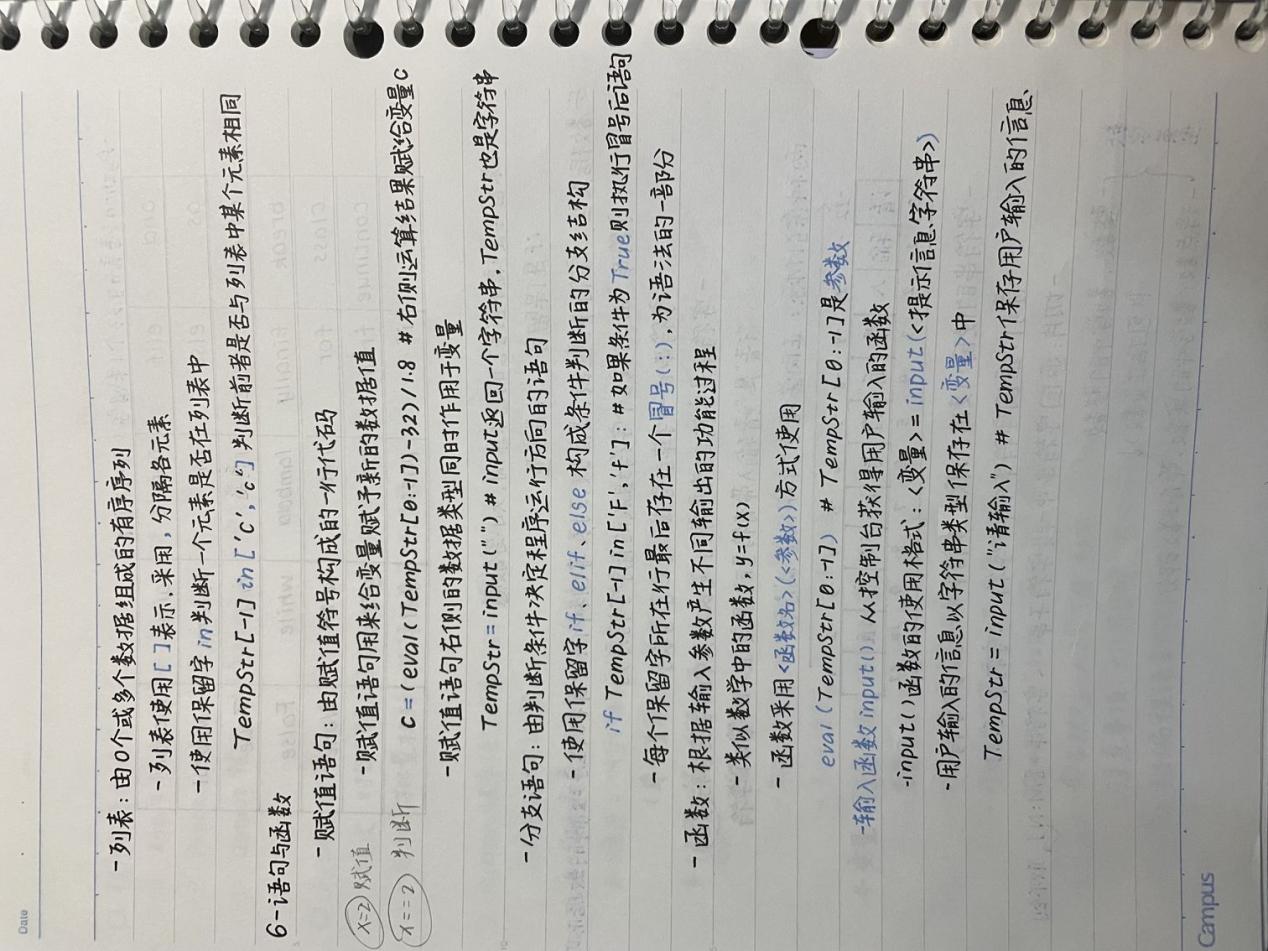 Date
- 列表：由0个或多个数据组成的有序序列
- 列表使用[ ]表示，采用，分隔各元素
- 使用保留字in判断一个元素是否在列表中
TempStr[-1] in ['C','c'] 判断前者是否与列表中某个元素相同
6-语句与函数
- 赋值语句：由赋值符号构成的一行代码
x=2 赋值
- 赋值语句用来给变量赋予新的数据值
x==2 判断
C = (eval(TempStr[0:-1])-32)/1.8 # 右侧运算结果赋给变量C
- 赋值语句右侧的数据类型同时作用于变量
TempStr=input("") # input返回一个字符串，TempStr也是字符串
- 分支语句：由判断条件决定程序运行方向的语句
- 使用保留字if、elif、else 构成条件判断的分支结构
if TempStr[-1] in ['F','f']: #如果条件为True则执行冒号后语句
- 每个保留字所在行最后存在一个冒号(:)，为语法的一部份
- 函数：根据输入参数产生不同输出的功能过程
- 类似数学中的函数，y=f(x)
- 函数采用<函数名>(<参数>)方式使用
eval(TempStr[0:-1]) # TempStr[0:-1]是参数
-输入函数input() 从控制台获得用户输入的函数
-input()函数的使用格式：<变量>=input(<提示信息字符串>)
-用户输入的信息以字符串类型保存在<变量>中
TempStr=input("请输入") # TempStr保存用户输入的信息
Campus